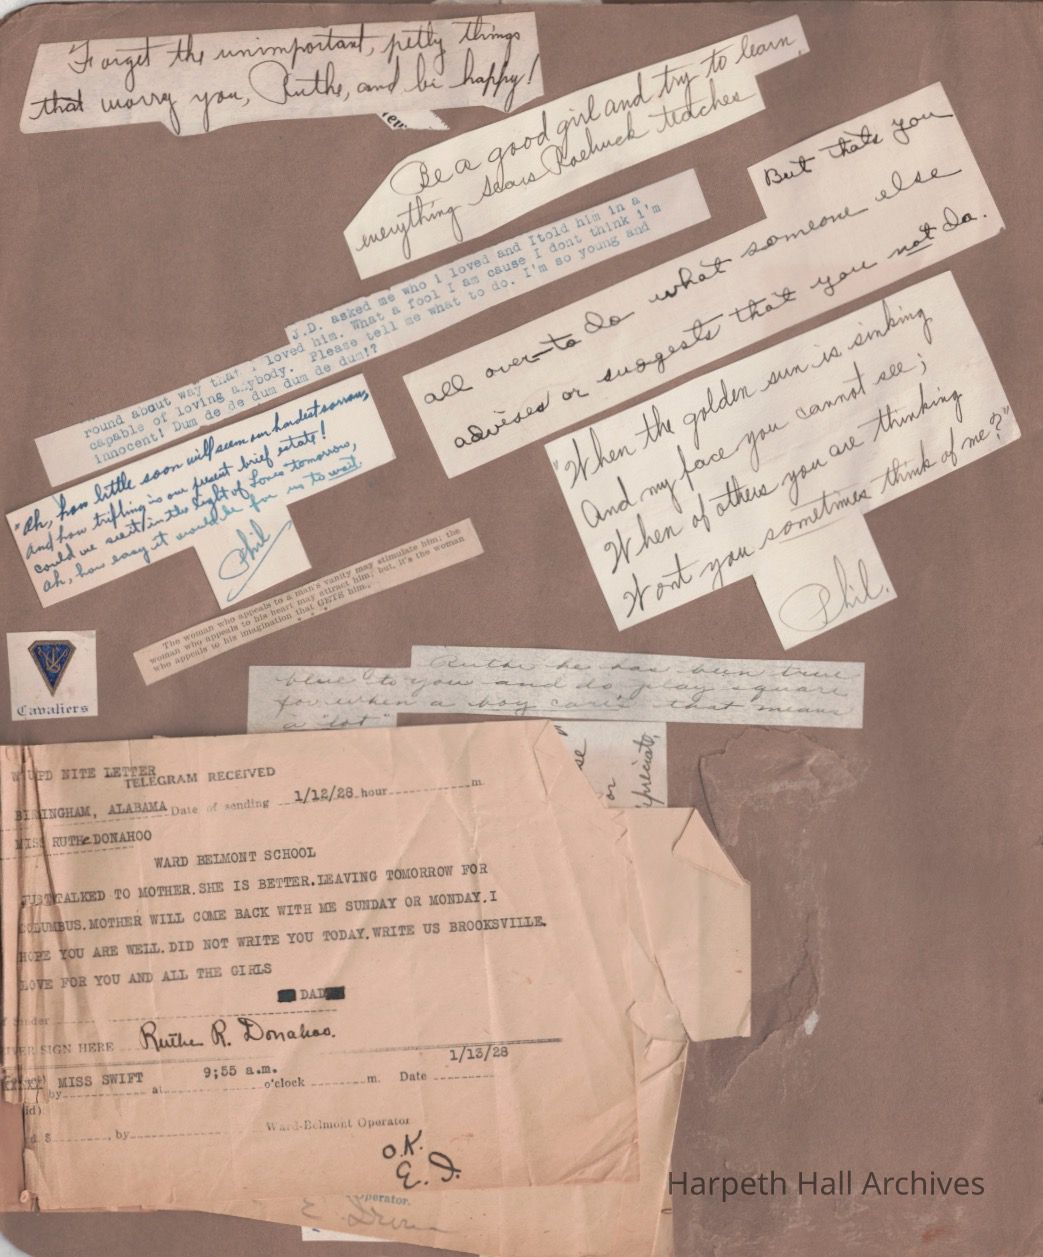 Forget the unimportant, petty things
that worry you, Ruthe, and be happy!
Be a good girl and try to learn
everything Sears Roebuck teaches
J.D. asked me who i loved and Itold him in a
round about way that I loved him. What a fool I am cause I dont think i'm
capable of loving anybody. Please tell me what to do. I'm so young and
innocent! Dum de de dum dum de dum!?
But thats you
all over—to do what someone else
advises or suggests that you not do.
"Ah, how little soon will seem our hardest sorrow,
and how trifling is our present brief estate!
could we see it in the light of Loves tomorrow,
ah, how easy it would be for us to wait
Phil
"When the golden sun is sinking
And my face you cannot see;
When of others you are thinking
Wont you sometimes think of me?"
Phil.
The woman who appeals to a man's vanity may stimulate him; the
woman who appeals to his heart may attract him; but, it's the woman
who appeals to his imagination that GETS him.
Cavaliers
Ruthe he has been true
blue to you and do play square
for when a boy cares that means
a "lot"
or
UPD NITE LETTER
TELEGRAM RECEIVED
BIRMINGHAM, ALABAMA Date of sending 1/12/28 hour m.
MISS RUTHe DONAHOO
WARD BELMONT SCHOOL
JUST TALKED TO MOTHER.SHE IS BETTER.LEAVING TOMORROW FOR
COLUMBUS.MOTHER WILL COME BACK WITH ME SUNDAY OR MONDAY.I
HOPE YOU ARE WELL.DID NOT WRITE YOU TODAY.WRITE US BROOKSVILLE.
LOVE FOR YOU AND ALL THE GIRLS
DAD
SIGN HERE Ruthe R. Donahoo.
MISS SWIFT 9;55 a.m. 1/13/28
by at o'clock m. Date
$ , by Ward-Belmont Operator
O.K.
E. I.
Operator.
Harpeth Hall Archives